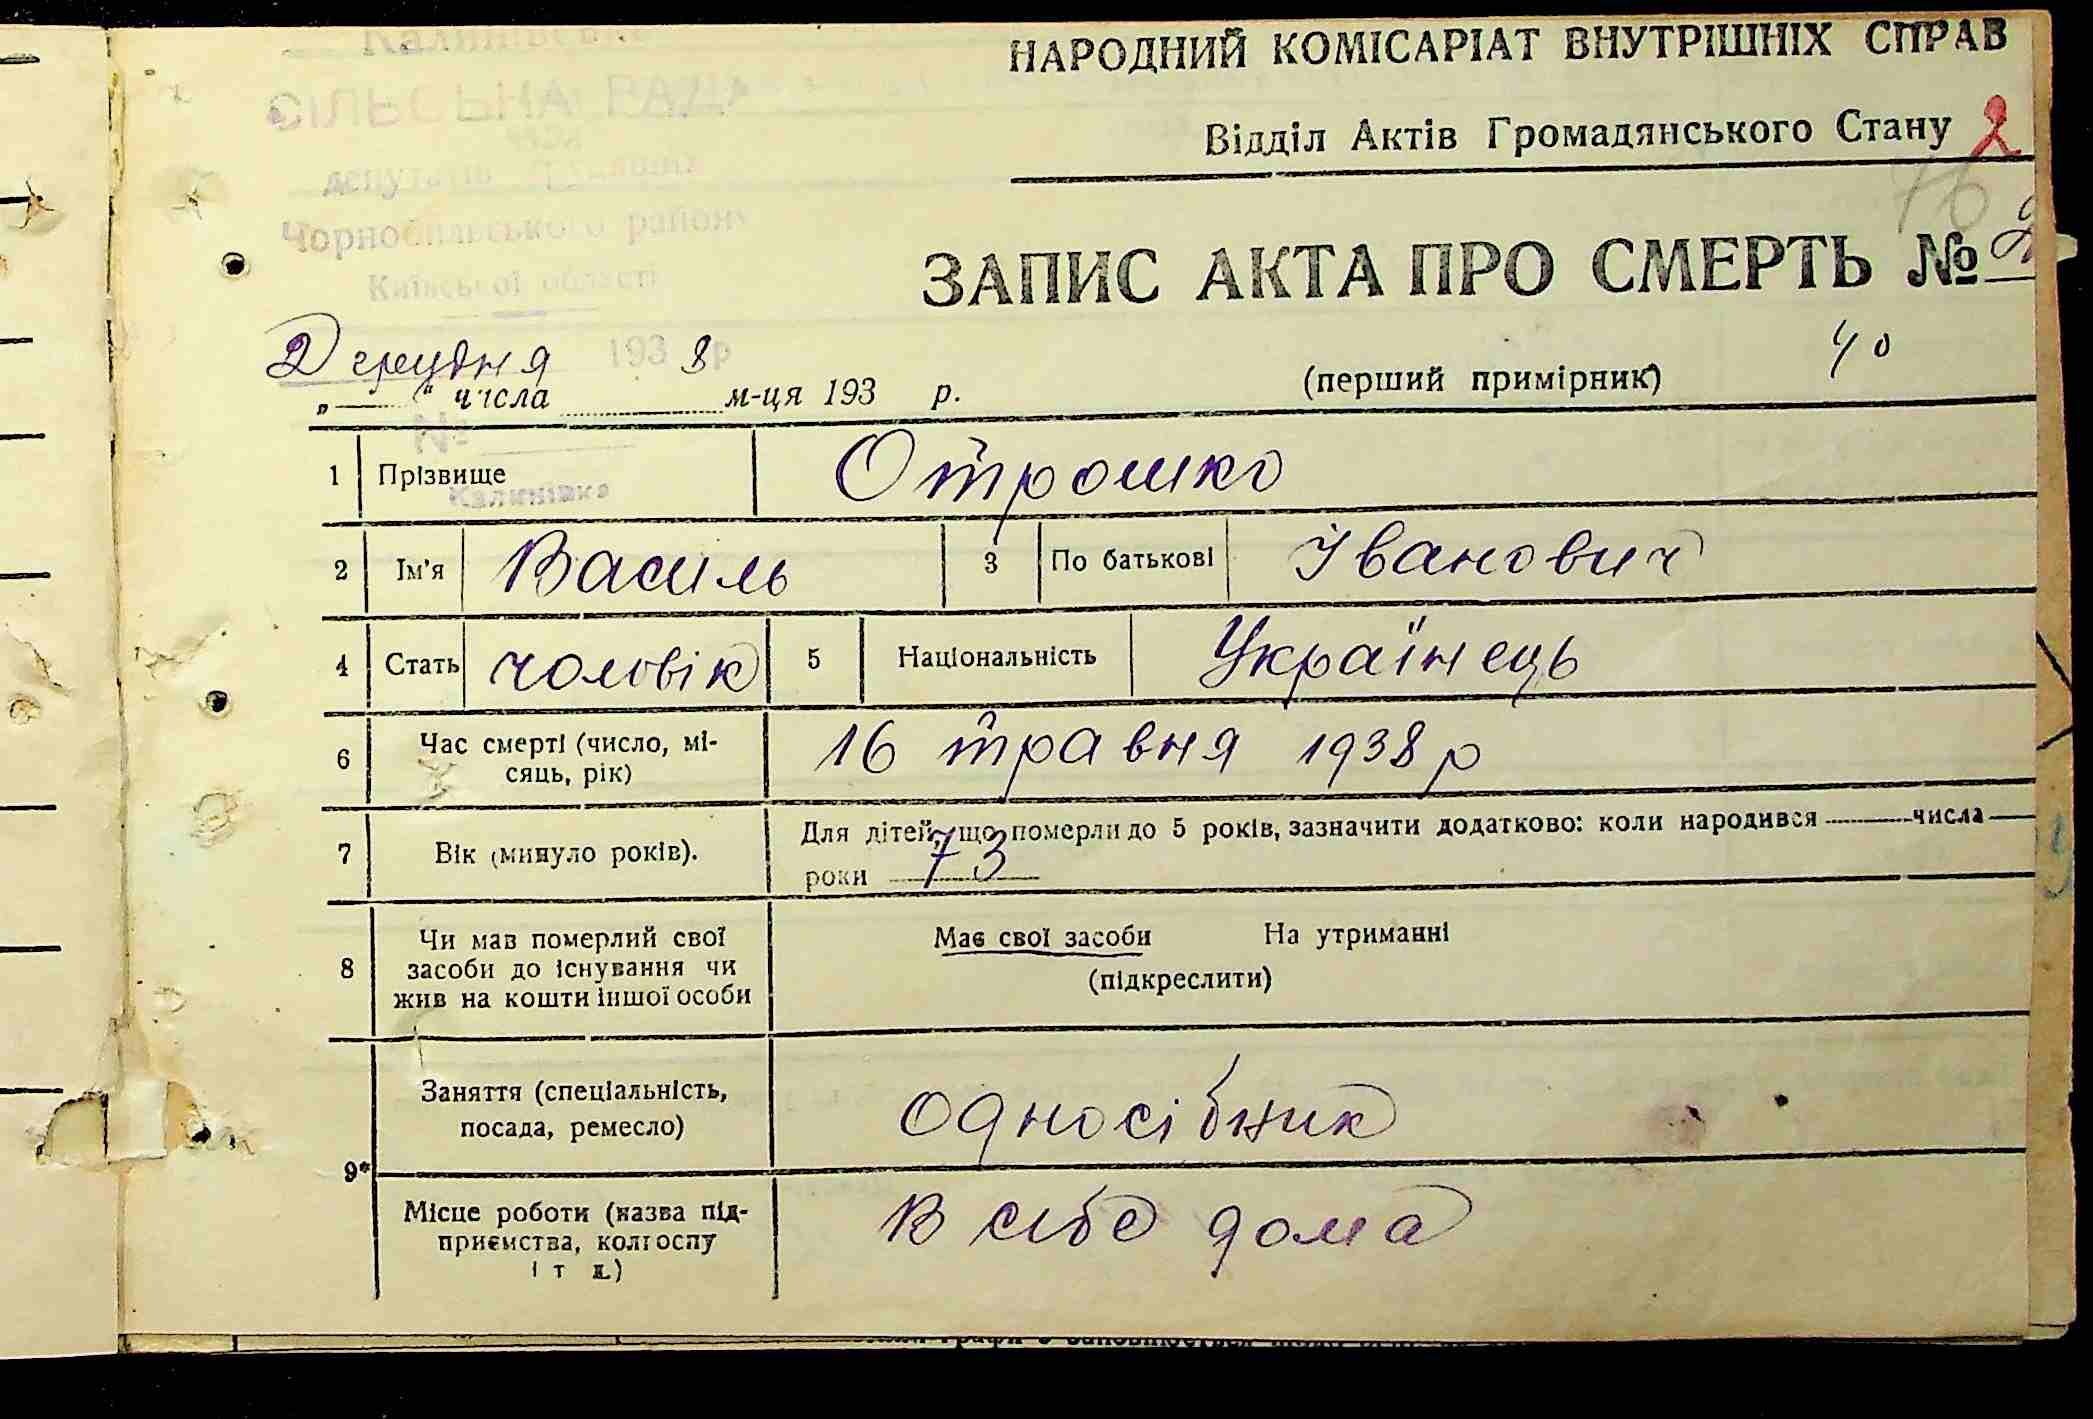 Калинівська
СІЛЬСЬКА РАДА
депутатів трудящих
Чорнобильського району
Київської області
НАРОДНИЙ КОМІСАРІАТ ВНУТРІШНІХ СПРАВ
Відділ Актів Громадянського Стану 2
76
ЗАПИС АКТА ПРО СМЕРТЬ №
2 грудня 1938 р
„ “ числа м-ця 193 р.
(перший примірник)
40
№
Калинівка
1 Прізвище Отрошко
2 Ім'я Василь 3 По батькові Іванович
4 Стать чоловік 5 Національність Українець
6 Час смерті (число, мі-
сяць, рік) 16 травня 1938 р
7 Вік (минуло років). Для дітей, що померли до 5 років, зазначити додатково: коли народився числа
роки 73
8 Чи мав померлий свої
засоби до існування чи
жив на кошти іншої особи
Має свої засоби На утриманні
(підкреслити)
9*
Заняття (спеціальність,
посада, ремесло) односібник
Місце роботи (назва під-
приємства, колгоспу
і т д.) В себе дома